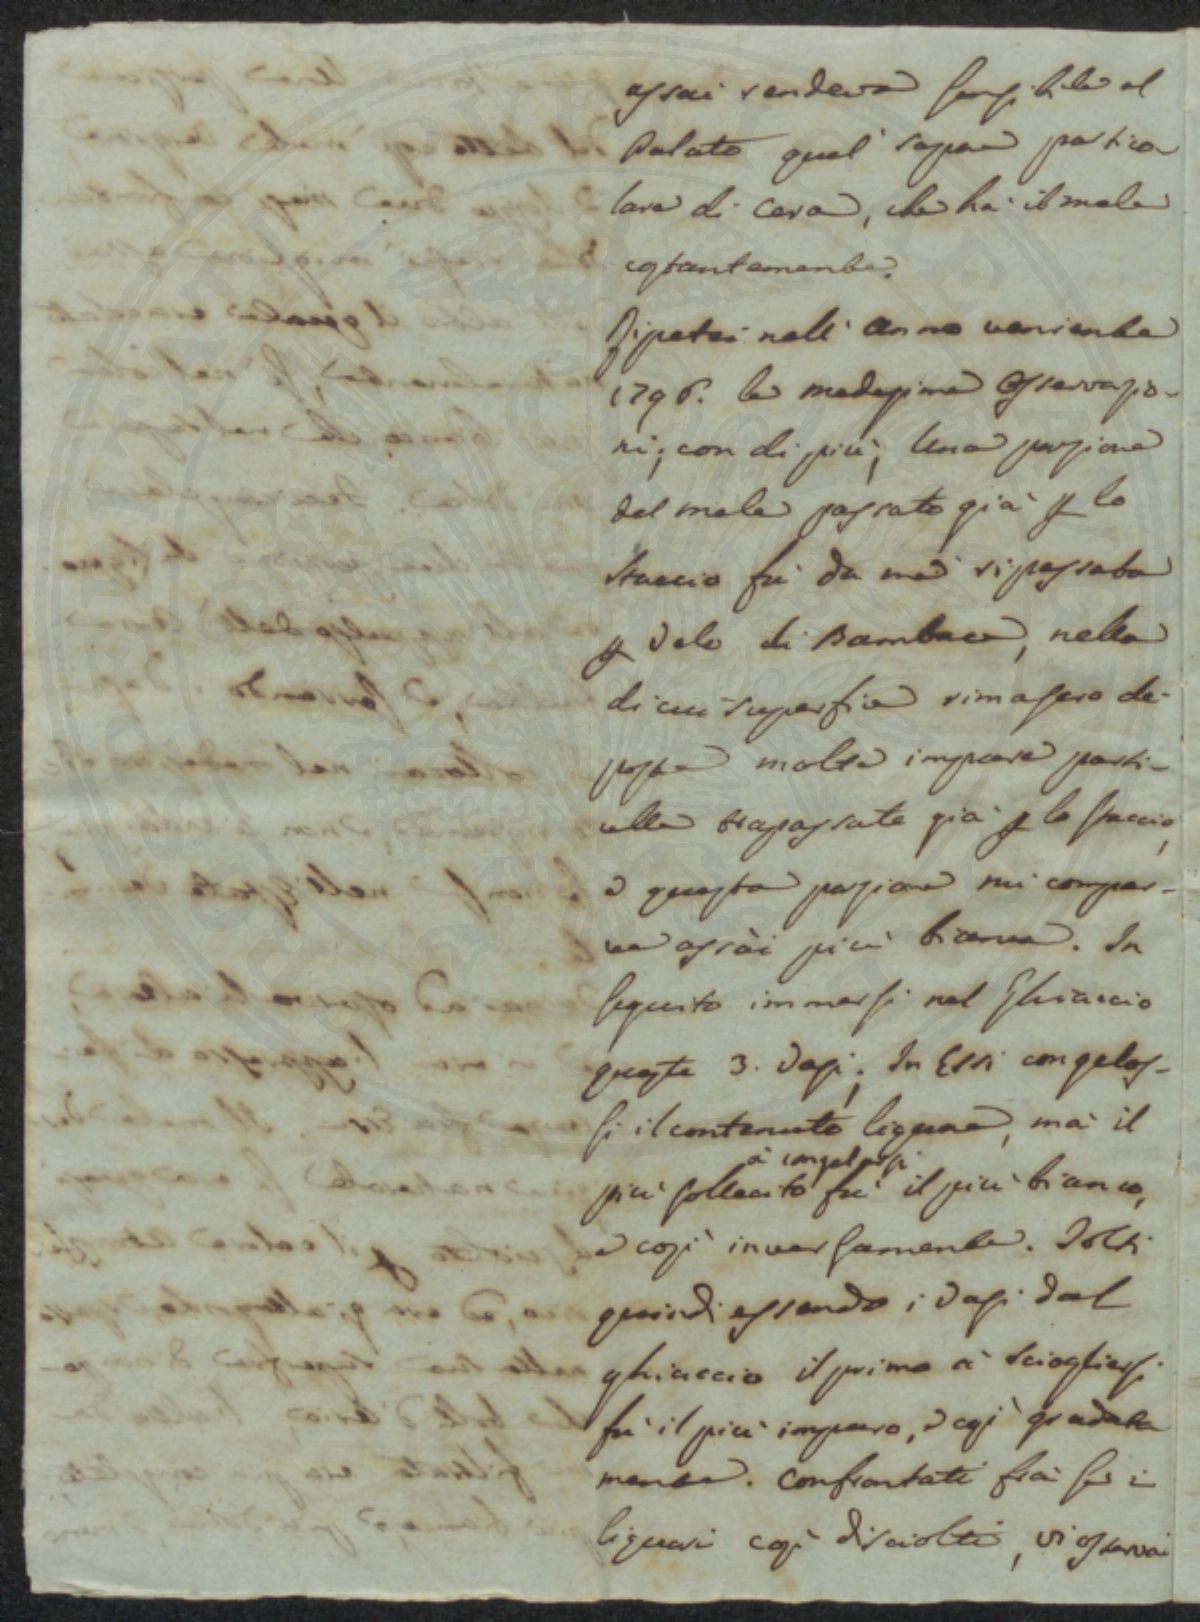 assai rendeva sensibile al
Palato quel sapore partico
lare di cera, che ha il mele
costantemente.
Ripetei nell' anno veniente
1796. le medesime osservazio-
ni; con di più; Una porzione
del mele passato già p lo
staccio fù da me ripassata
p velo di Bambace, nella
di cui superficie rimasero de-
poste molte impure parti-
celle trapassate già p lo staccio,
e questa porzione mi compar-
ve assài più bianca. In
seguito immersi nel Ghiaccio
queste 3. Vasi; In Essi congelos-
si il contenuto liquore, mà il
à congelarsi
più sollecito fù il più bianco,
e così inversamente. Tolti
quindi essendo i Vasi dal
ghiaccio il primo à sciogliersi
fù il più impuro, e così gradata
mente. Confrontati frà se i
liquori così disciolti, vi osservai